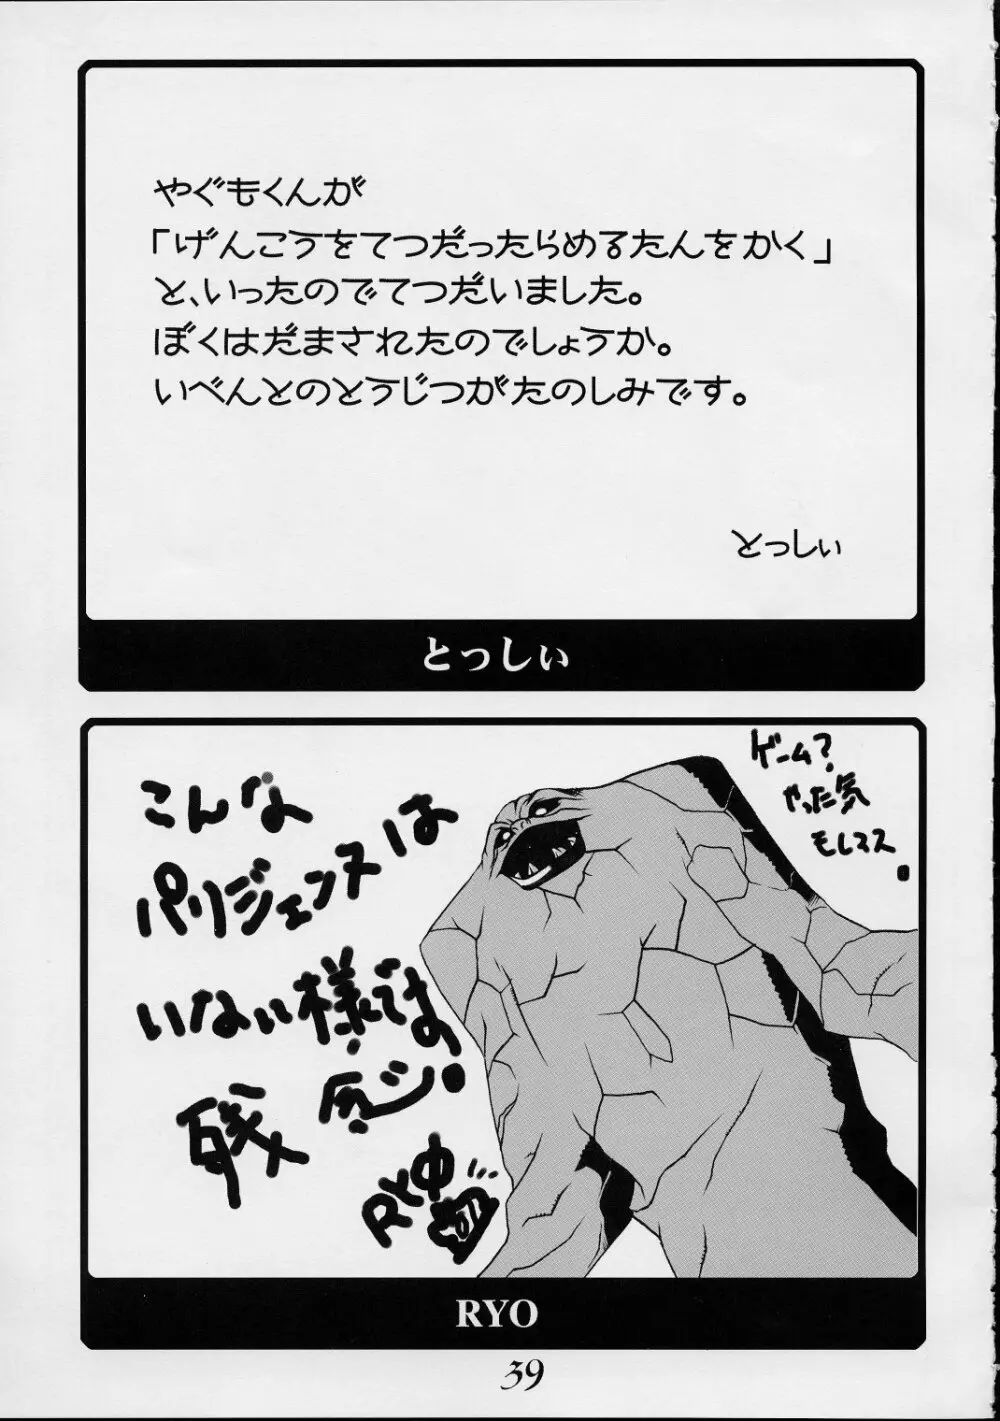 やぐもくんが
「げんこうをてつだったらめるたんをかく」
と、いったのでてつだいました。
ぼくはだまされたのでしょうか。
いべんとのとうじつがたのしみです。
とっしぃ
とっしぃ
ゲーム？
やった気
モレマス
こんな
パリジェンヌは
いない様です
残念ッ！
RYO
39